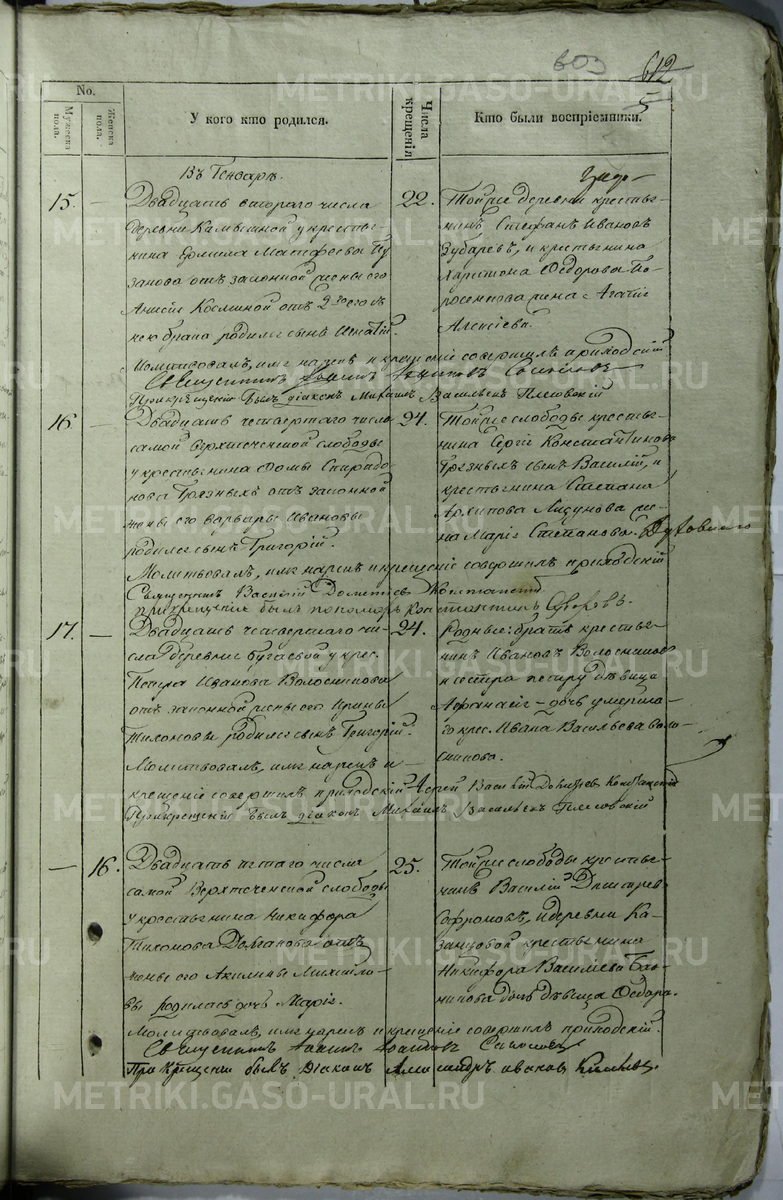 603
612
5
No.
Мужеска пола.
Женска пола.
У кого кто родился.
Числа крещенія
Кто были воспріемники.
Въ Генварѣ.
15.
—
Двадцать втораго числа
деревни Калмыцкой у крестья-
нина Ермила Матфеева Пу-
занова отъ законной жены его
Анисіи КосмИной отъ 2го съ
нею брака родился сынъ Игнатій.
22.
Тойже деревни крестья-
нинъ Стефанъ Ивановъ
Зубаревъ, и крестьянина
Харитона Федорова По-
росенкова жена Агафія
Алексіева.
Молитвовалъ, имя нарекъ и крещеніе совершилъ приходскій
Священникъ Іоаннъ
При крещеніи былъ діаконъ Михаилъ Васильевъ
16
—
Двадцать четвертаго числа
самой Верхтеченской слободы
у крестьянина Фомы Спиридо-
нова Грязныхъ отъ законной
жены его Варвары Ивановы
родился сынъ Григорій.
24.
Тойже слободы крестья-
нина Сергія Константинова
Грязныхъ сынъ Василій, и
крестьянина Стефана
Архипова Лидунова же-
на Марія Стефанова.
Молитвовалъ, имя нарекъ и крещеніе совершилъ приходскій
Священникъ Василій Дометіевъ
При крещеніи былъ пономарь Константинъ
17.
—
Двадцать четвертаго чи-
сла деревни Бугаевой у крес.
Петра Иванова Волосникова
отъ законной жены его Ирины
Тихоновы родился сынъ Григорій.
24.
Родные: братъ крестья-
нинъ Ивановъ Волосниковъ
и сестра Петру дѣвица
Афанасія – дочь умерша-
го крес. Ивана Васильева Воло-
сникова.
Молитвовалъ, имя нарекъ и
крещеніе совершилъ приходскій Іерей Василій
При крещеніи былъ діаконъ Михаилъ Васильевъ
—
16.
Двадцать пятаго числа
самой Верхтеченской слободы
у крестьянина Никифора
Тихонова Долганова отъ
жены его Акилины Михайло-
вы родилась дочь Марія.
25.
Тойже слободы крестья-
нинъ Василій Дмитріев
Сафроновъ, и деревни Ка-
занцовой крестьянина
Никифора Василіева
дочь дѣвица Федора.
Молитвовалъ, имя нарекъ и крещеніе совершилъ приходскій
Священникъ Іоаннъ
При крещеніи былъ Діаконъ Александръ Ивановъ
METRIKI.GASO-URAL.RU